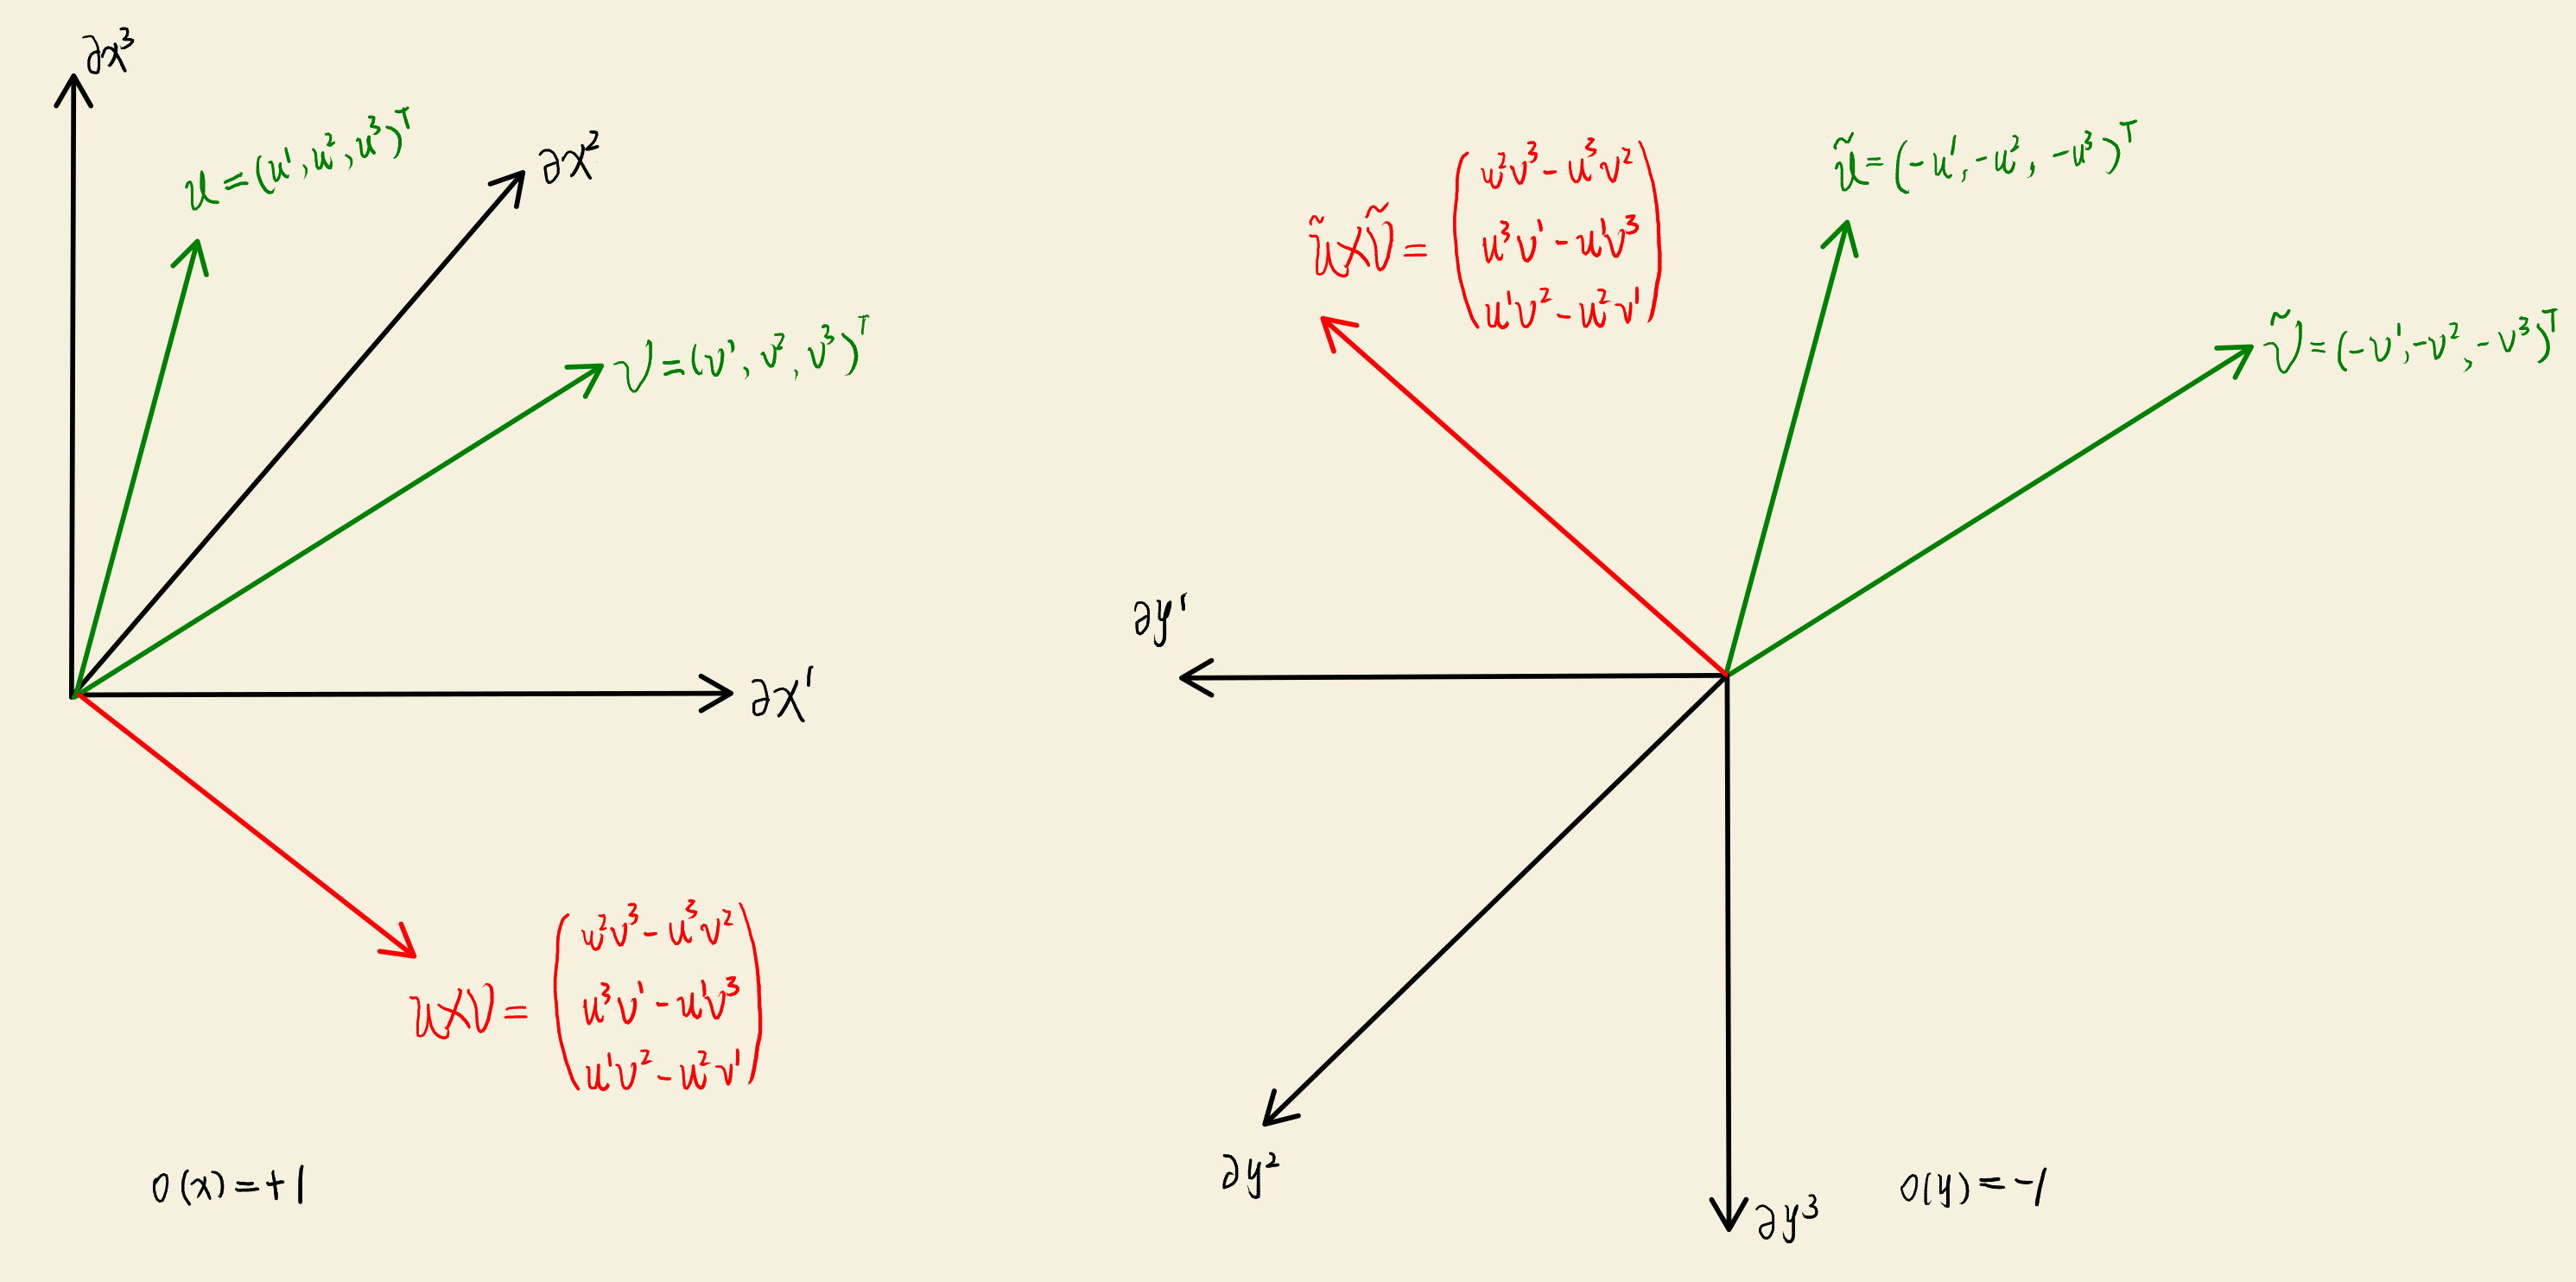 ∂x³
u = (u¹, u², u³)ᵀ
∂x²
v = (v¹, v², v³)ᵀ
∂x¹
u×v =
u²v³ - u³v²
u³v¹ - u¹v³
u¹v² - u²v¹
o(x) = +1
ũ = (-u¹, -u², -u³)ᵀ
ũ×ṽ =
u²v³ - u³v²
u³v¹ - u¹v³
u¹v² - u²v¹
ṽ = (-v¹, -v², -v³)ᵀ
∂y¹
∂y²
∂y³
o(y) = -1